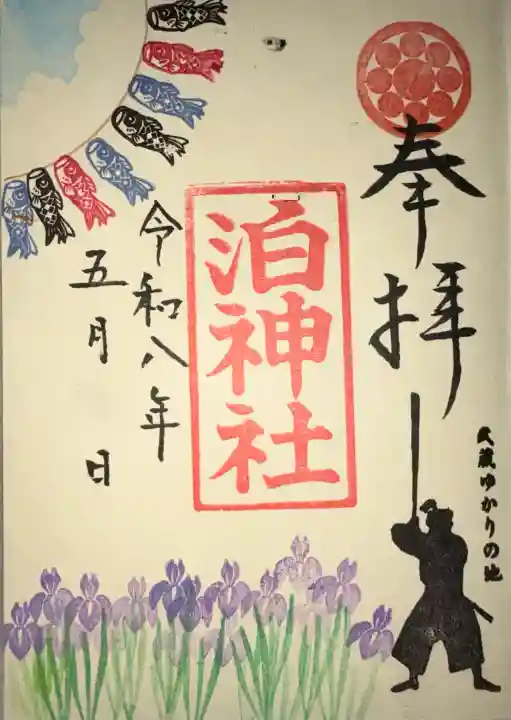 奉拝
武蔵ゆかりの地
泊神社
令和八年
五月 日